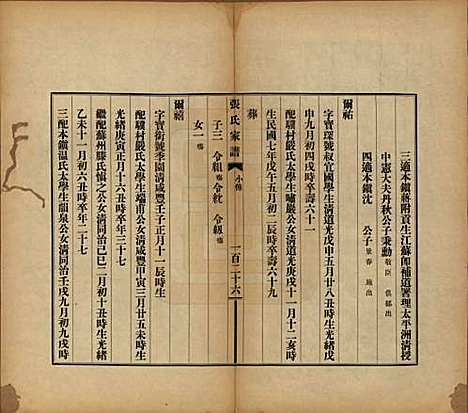 三適本鎮蔣附貢生江蘇候補道署理太平洲清授
中憲大夫丹秋公子秉勳
四適本鎮沈　公子
爾祐
字寶琛號叔宜國學生清道光戊申五月廿八丑時生光緒戊
申九月初四戌時卒壽六十一
配驥村嚴氏太學生嘯巖公女清道光庚戌十一月十二亥時
生民國七年戊午五月初二辰時卒壽六十九
葬
子三　令組殤　令紋　令紉殤
女一殤
張氏家譜
小傳
一百二十六
爾禧
字寶銜號季園清咸豐壬子正月十一辰時生
配驥村嚴氏太學生端甫公女清咸豐甲寅三月廿五未時生
光緒庚寅正月十六丑時卒年三十七
繼配蘇州滕氏慎之公女清同治己巳二月初十丑時生光緒
乙未十一月初六丑時卒年二十七
三配本鎮温氏太學生韻泉公女清同治壬戌九月初九戌時